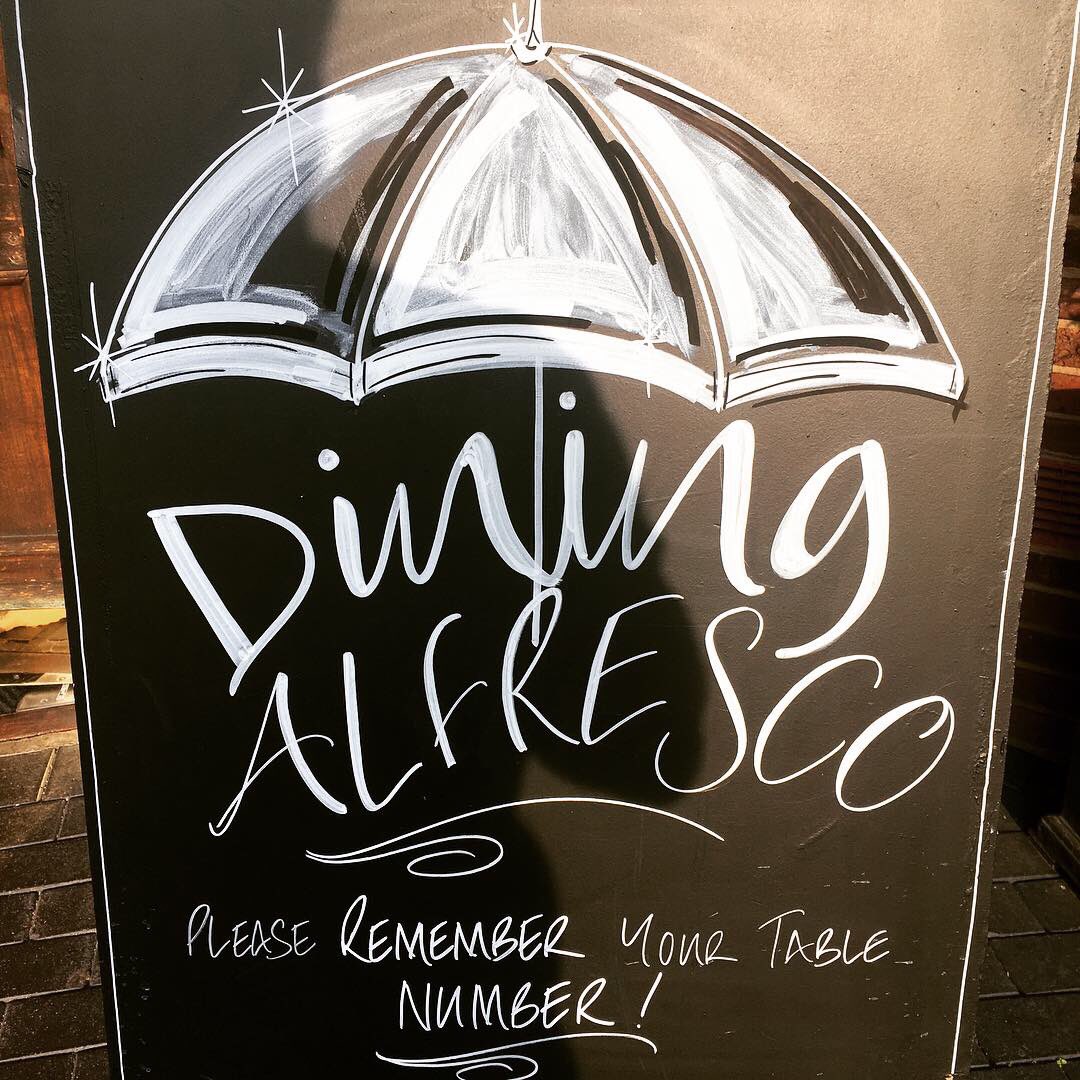 Dining
ALFRESCO
PLEASE REMEMBER YOUR TABLE
NUMBER!